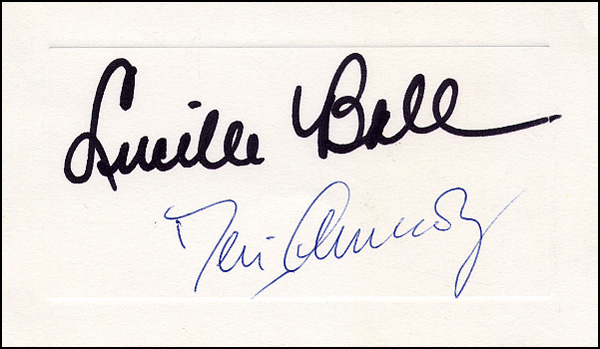 Lucille Ball
Desi Arnaz